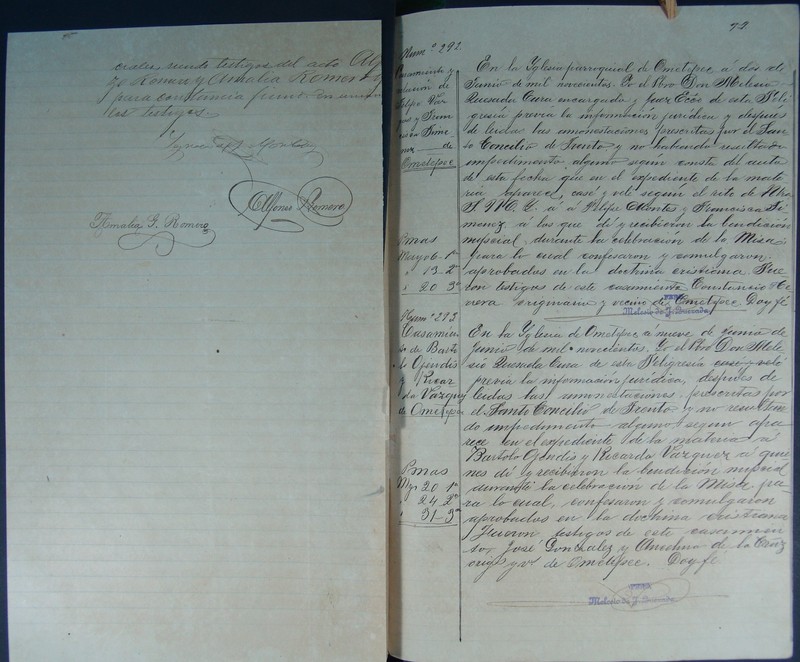 tigos del acto
Romero y Amalia Romero
para constancia firman
los testigos.
Alfonso Romero
Amalia G. Romero
73.
Num.º 292.
Casamiento y
velación de
Felipe
y Fran
cisca Jime
nez de
Ometepec
Pmas
Mayo 6 - 1ª
" 13 - 2ª
" 20 3ª
En la Yglesia parroquial de Ometepec á dos de
Junio de mil novecientos. Yo el Pbro Don Melesio
Quesada Cura encargado y Juez Ecco de esta Feli
gresia previa la informacion juridica y despues
de leidas las amonestaciones prescritas por el San
to Concilio de Trento y no habiendo resultado
impedimento alguno segun consta del auto
de esta fecha que en el expediente de la mate
ria aparece, casé y velé segun el rito de Ntra
S. Y. M. á á Felipe Montes y Francisca Ji
menez á los que dí y recibieron la bendicion
nupcial, durante la celebracion de la Misa,
para lo cual confesaron y comulgaron
aprobados en la doctrina cristiana. Fue
ron testigos de este casamiento Constancio
originario y vecino de Ometepec Doy fé
Melesio de J. Quesada
Num.º 293
Casamien
to de Barto
lo Ojendis
y Ricar
da Vazquez
de Ometepec
Pmas
Myo 20 1ª
" 24 2ª
" 31 - 3ª
En la Yglesia de Ometepec á nueve de
Junio de mil novecientos. Yo el Pbro Don Mele
sio Quesada Cura de esta Feligresía casé y velé
previa la informacion juridica, despues de
leidas las amonestaciones prescritas por
el Santo Concilio de Trento y no resultan
do impedimento alguno segun apa
rece en el expediente de la materia á
Bartolo Ojendis y Ricarda Vazquez á quie
nes dí y recibieron la bendicion nupcial
durante la celebracion de la Misa pa
ra lo cual, confesaron y comulgaron
aprobados en la doctrina cristiana
Fueron testigos de este casamien
to, José Gonzalez y Anselmo de la Cruz
origs y vs de Ometepec. Doy fé
Melesio de J. Quesada